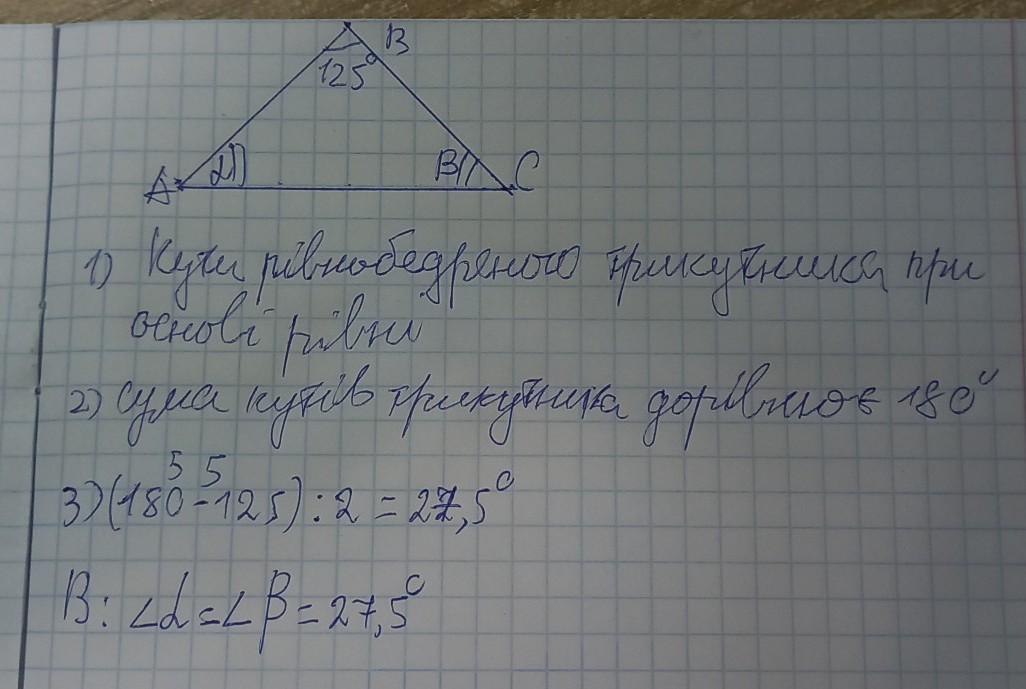 B
125°
α
β
A
C
1) Кути рівнобедреного трикутника при
основі рівні
2) сума кутів трикутника дорівнює 180°
5 5
3) (180-125) : 2 = 27,5°
В: ∠α = ∠β = 27,5°